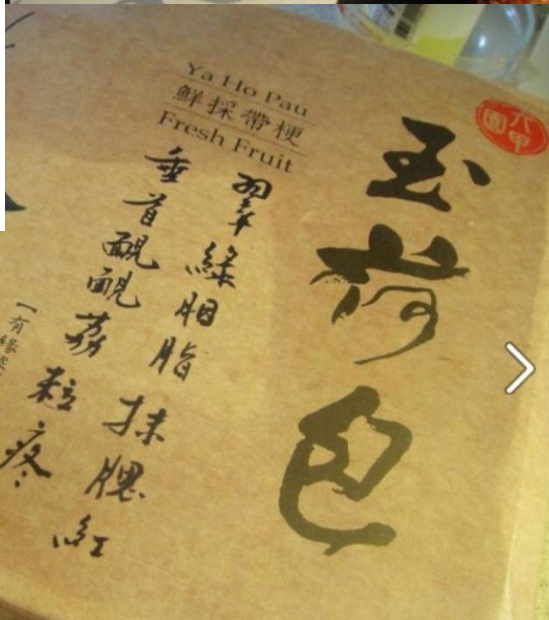 Ya Ho Pau
鮮採帶梗
Fresh Fruit
六甲園
玉荷包
翠綠胭脂抹腮紅
垂首靦靦荔粒疼
【有緣